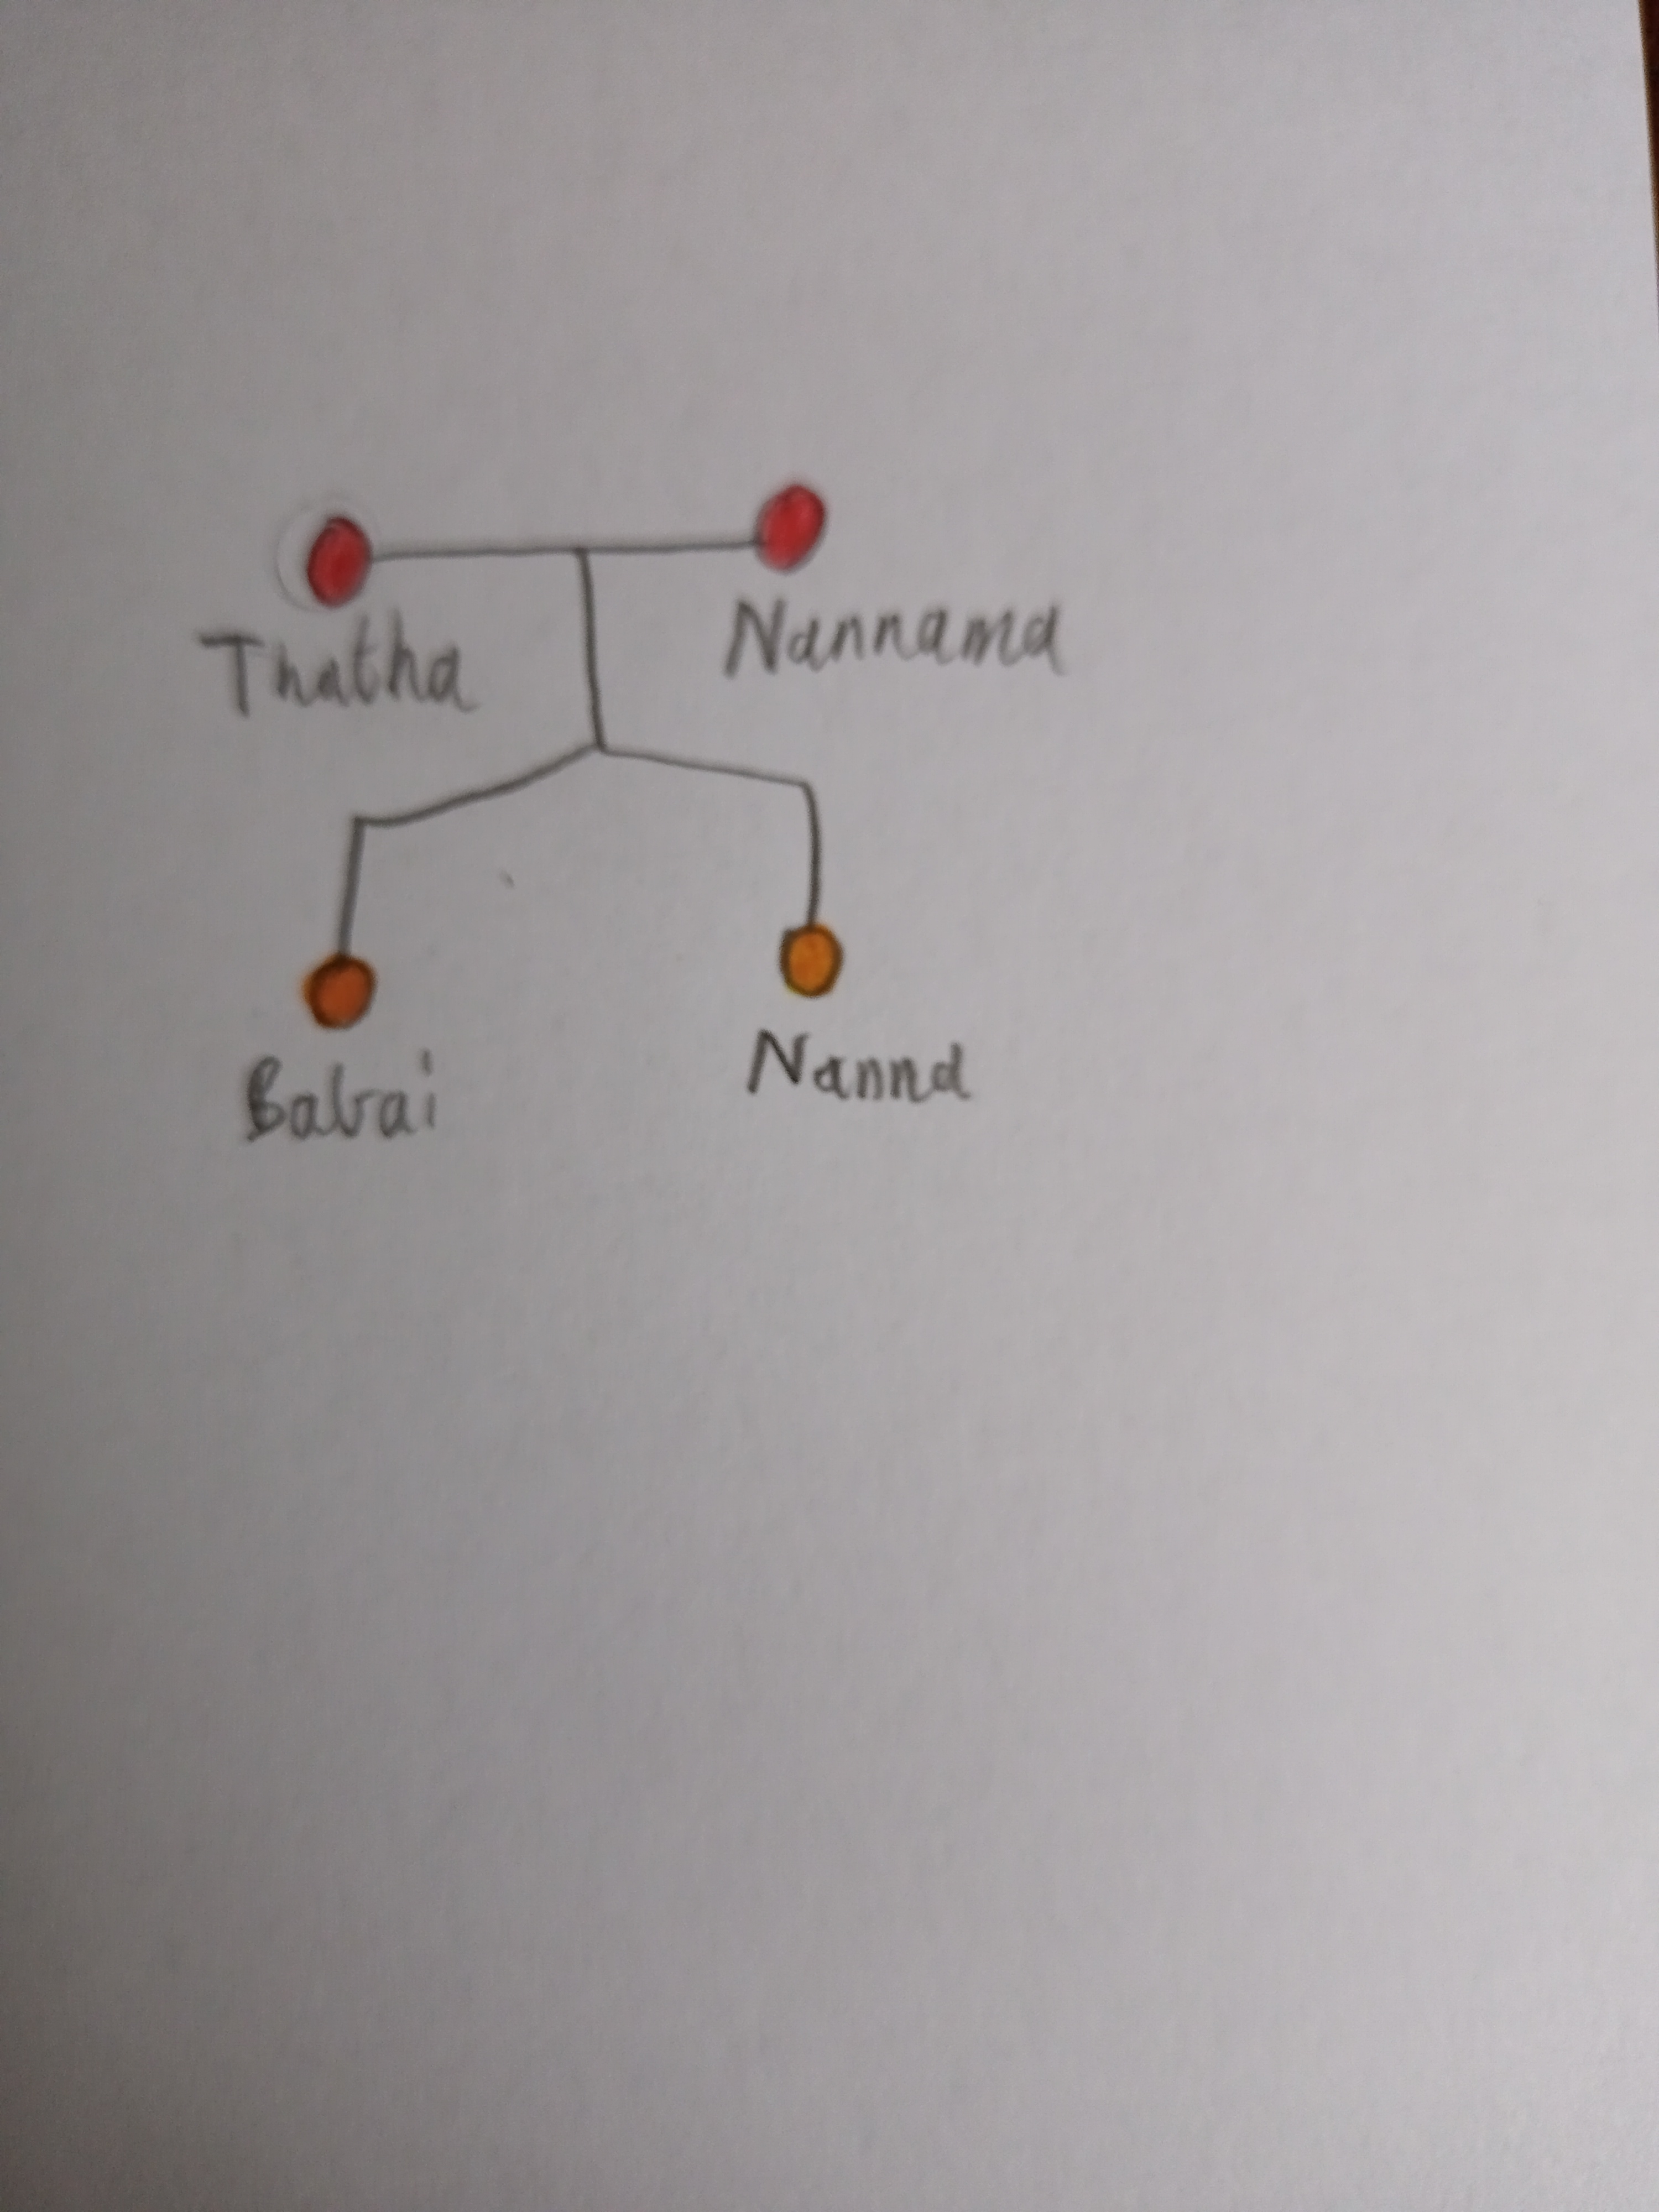 Thatha
Nannama
Babai
Nanna